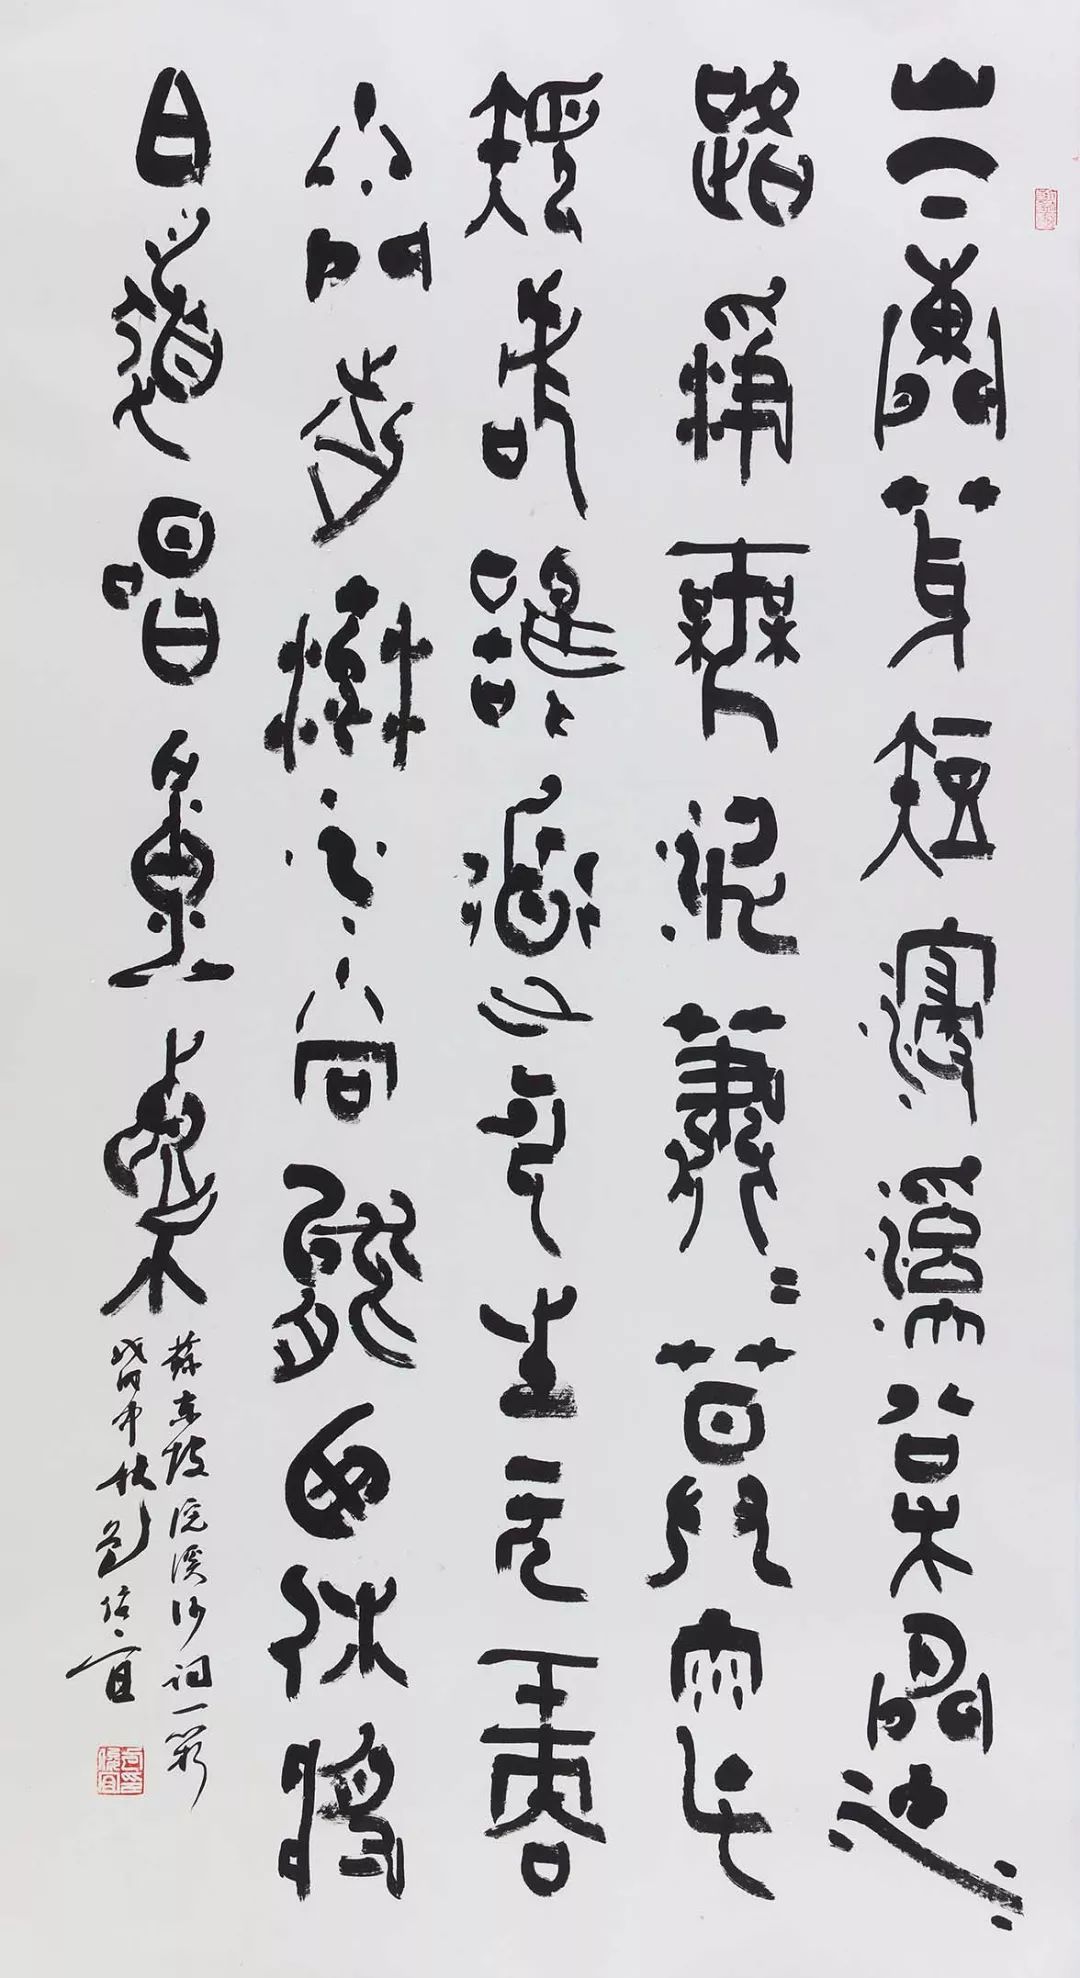 山下蘭芽短浸溪松間沙
路淨無泥蕭蕭暮雨子
規啼誰道人生无再
少門前流水尚能西休將
白髮唱黃雞
蘇東坡浣溪沙詞一
中秋